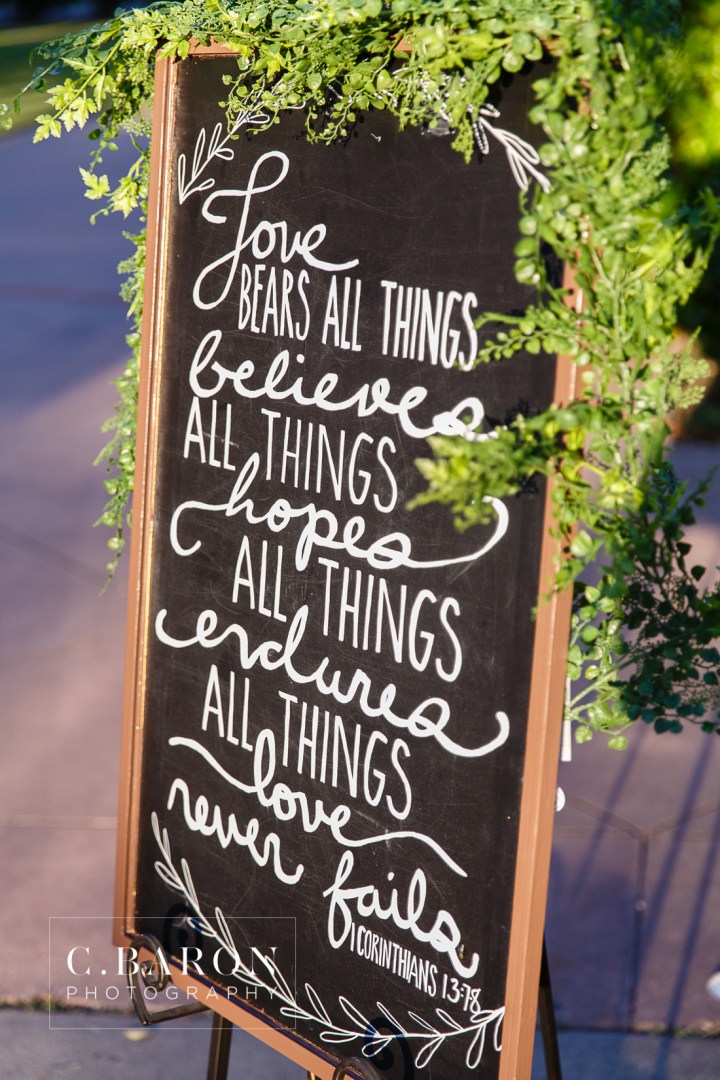 Love
BEARS ALL THINGS
believes
ALL THINGS
hopes
ALL THINGS
endures
ALL THINGS
love
never fails
1 CORINTHIANS 13:7-8
C. BARON
PHOTOGRAPHY